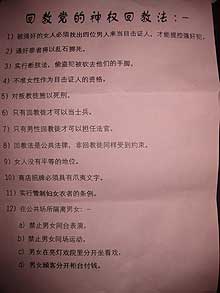 回教党的神权回教法：－
1) 被强奸的女人必须找出四位男人来当目击证人，才能提控强奸犯。
2) 通奸罪者将以乱石掷死。
3) 实行断肢法，偷盗犯被砍去他们的手脚。
4) 不准女性作为目击证人的资格。
5) 对叛教徒施以死刑。
6) 只有回教徒才可以当士兵。
7) 只有男性回教徒才可以担任法官。
8) 回教法是公共法律，非回教徒同样受到约束。
9) 女人没有平等的地位。
10) 商店招牌必须具有爪夷文字。
11) 实行管制仙女衣者的条例。
12) 在公共场所隔离男女：－
a) 禁止男女同台表演。
b) 禁止男女同场运动。
c) 男女在亮灯戏院里分开坐看戏。
d) 男女顾客分开柜台付钱。